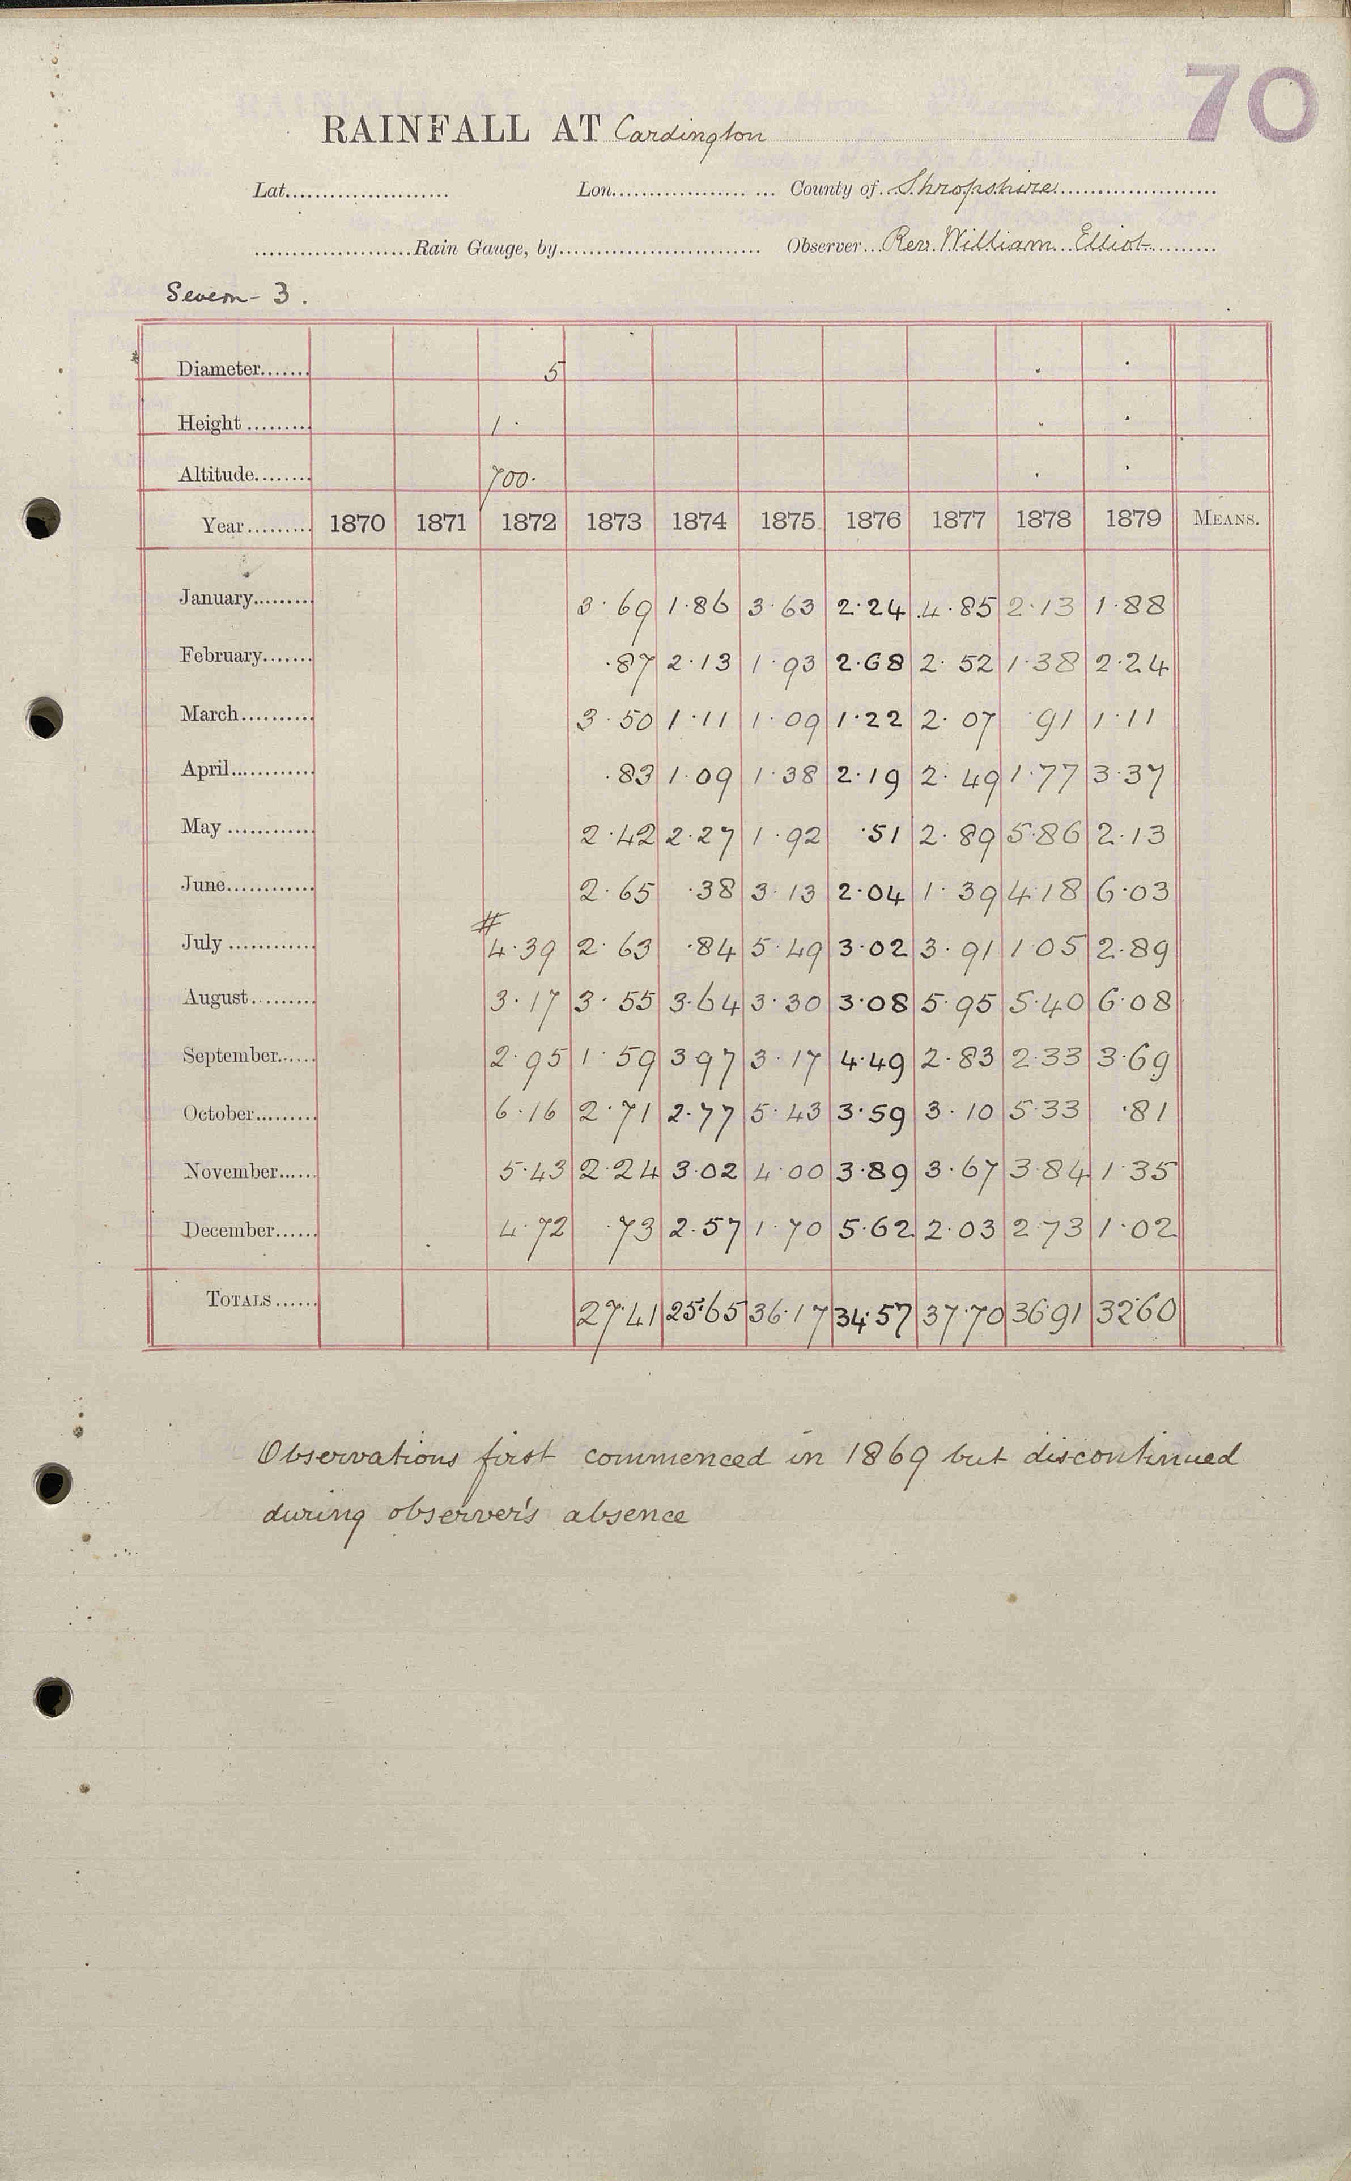 70
RAINFALL AT Cardington
Lat. Lon. County of Shropshire
Rain Gauge, by Observer Rev. William Elliot
Severn - 3.
Diameter 5
Height 1.
Altitude 700.
Year 1870 1871 1872 1873 1874 1875 1876 1877 1878 1879 MEANS.
January 3.69 1.86 3.63 2.24 4.85 2.13 1.88
February .87 2.13 1.93 2.68 2.52 1.38 2.24
March 3.50 1.11 1.09 1.22 2.07 .91 1.11
April .83 1.09 1.38 2.19 2.49 1.77 3.37
May 2.42 2.27 1.92 .51 2.89 5.86 2.13
June 2.65 .38 3.13 2.04 1.39 4.18 6.03
#
July 4.39 2.63 .84 5.49 3.02 3.91 1.05 2.89
August 3.17 3.55 3.64 3.30 3.08 5.95 5.40 6.08
September 2.95 1.59 3.97 3.17 4.49 2.83 2.33 3.69
October 6.16 2.71 2.77 5.43 3.59 3.10 5.33 .81
November 5.43 2.24 3.02 4.00 3.89 3.67 3.84 1.35
December 4.72 .73 2.57 1.70 5.62 2.03 2.73 1.02
TOTALS 27.41 25.65 36.17 34.57 37.70 36.91 32.60
Observations first commenced in 1869 but discontinued
during observer's absence